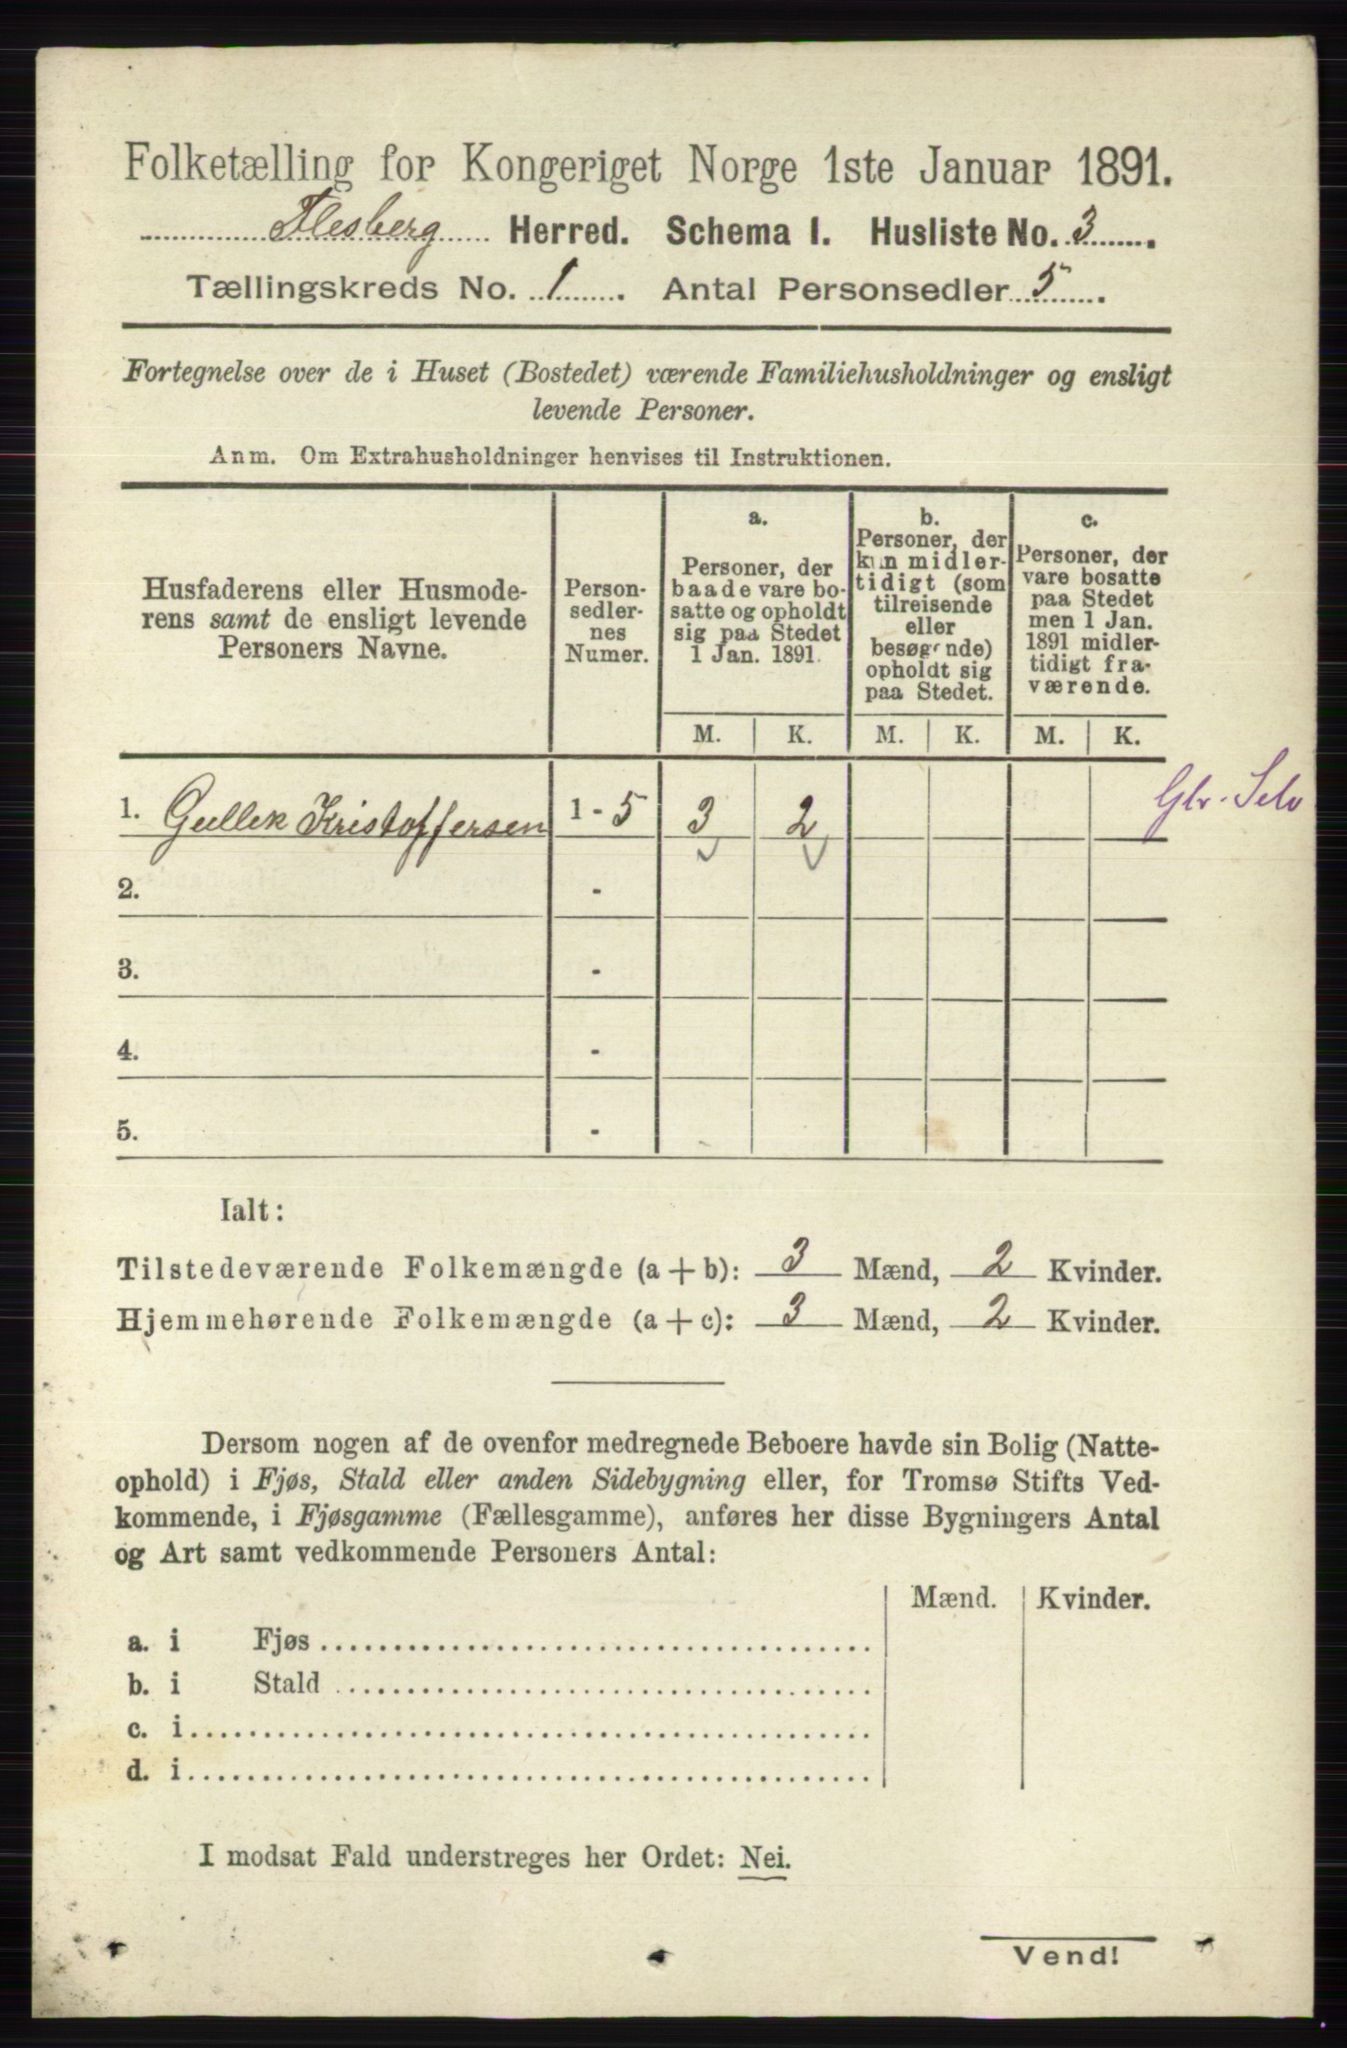 Folketælling for Kongeriget Norge 1ste Januar 1891.
Flesberg Herred. Schema I. Husliste No. 3.
Tællingskreds No. 1. Antal Personsedler 5.
Fortegnelse over de i Huset (Bostedet) værende Familiehusholdninger og ensligt
levende Personer.
Anm. Om Extrahusholdninger henvises til Instruktionen.
Husfaderens eller Husmode-
rens samt de ensligt levende
Personers Navne.
Person-
sedler-
nes
Numer.
a.
Personer, der
baade vare bo-
satte og opholdt
sig paa Stedet
1 Jan. 1891.
b.
Personer, der
kun midler-
tidigt (som
tilreisende
eller
besøgende)
opholdt sig
paa Stedet.
c.
Personer, der
vare bosatte
paa Stedet
men 1 Jan.
1891 midler-
tidigt fra-
værende.
M. K. M. K. M. K.
1. Gullek Kristoffersen 1 - 5 3 2 Glr. Selv
2. -
3. -
4. -
5. -
Ialt:
Tilstedeværende Folkemængde (a + b): 3 Mænd, 2 Kvinder.
Hjemmehørende Folkemængde (a + c): 3 Mænd, 2 Kvinder.
Dersom nogen af de ovenfor medregnede Beboere havde sin Bolig (Natte-
ophold) i Fjøs, Stald eller anden Sidebygning eller, for Tromsø Stifts Ved-
kommende, i Fjøsgamme (Fællesgamme), anføres her disse Bygningers Antal
og Art samt vedkommende Personers Antal:
Mænd. Kvinder.
a. i Fjøs
b. i Stald
c. i
d. i
I modsat Fald understreges her Ordet: Nei.
Vend!